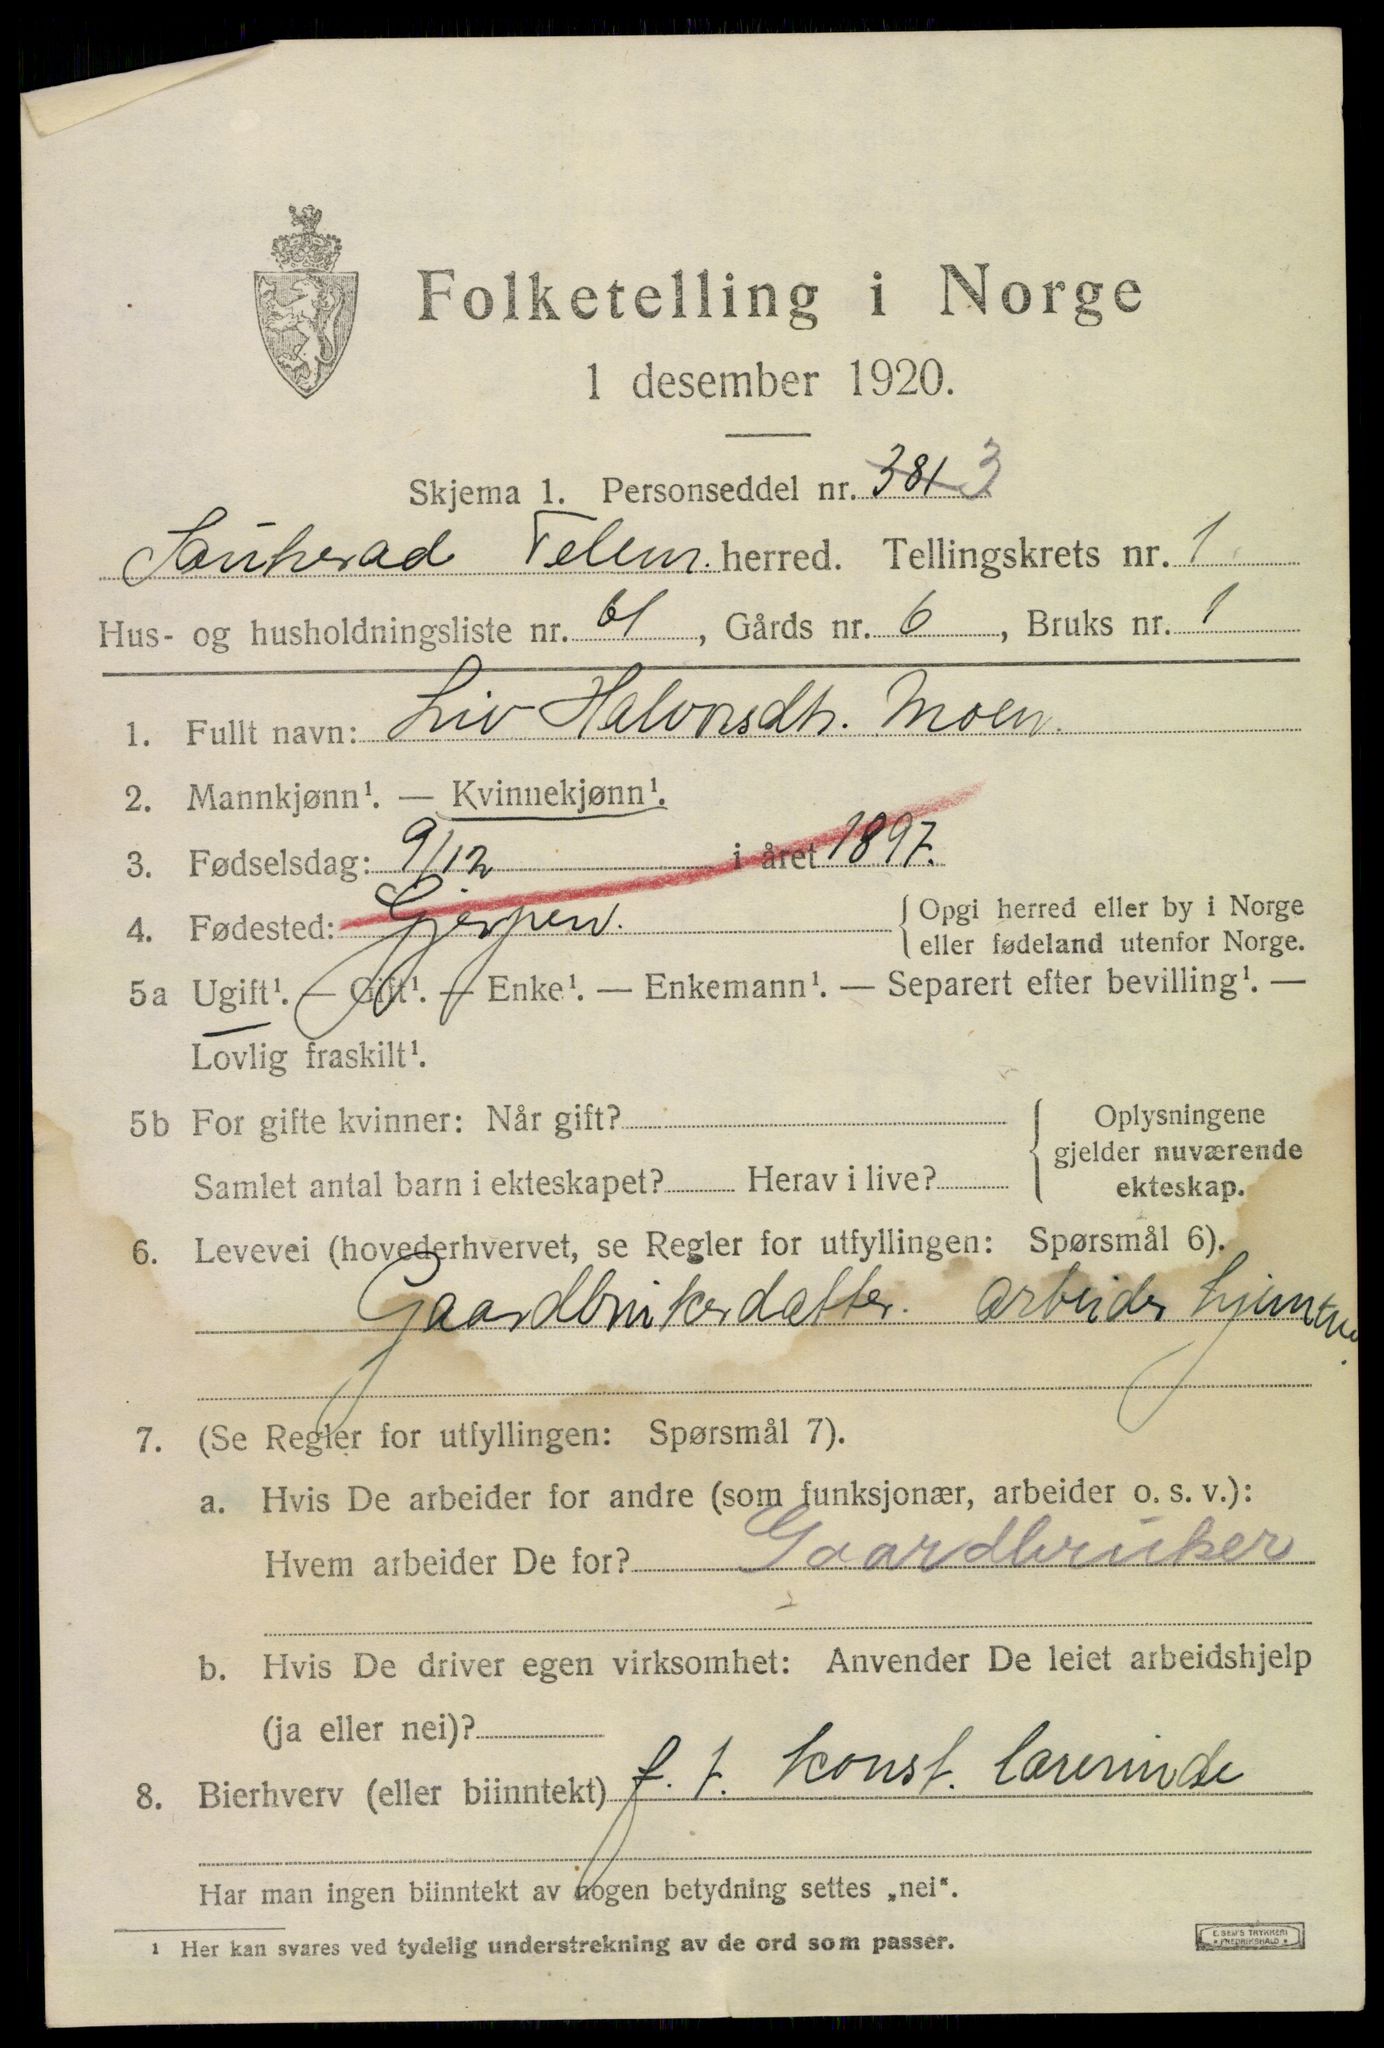 Folketelling i Norge
1 desember 1920.
Skjema 1. Personseddel nr. 381 3
Sauherad Telem. herred. Tellingskrets nr. 1
Hus- og husholdningsliste nr. 61, Gårds nr. 6, Bruks nr. 1
1. Fullt navn: Liv Halvorsdtr. Moen.
2. Mannkjønn¹. — Kvinnekjønn¹.
3. Fødselsdag: 9/12 i året 1897.
4. Fødested: Gjerpen. { Opgi herred eller by i Norge
eller fødeland utenfor Norge.
5a Ugift¹. — Gift¹. — Enke¹. — Enkemann¹. — Separert efter bevilling¹. —
Lovlig fraskilt¹.
5b For gifte kvinner: Når gift? { Oplysningene
gjelder nuværende
Samlet antal barn i ekteskapet? Herav i live? ekteskap.
6. Levevei (hovederhvervet, se Regler for utfyllingen: Spørsmål 6).
Gaardbrukerdatter. arbeider hjemme.
7. (Se Regler for utfyllingen: Spørsmål 7).
a. Hvis De arbeider for andre (som funksjonær, arbeider o. s. v.):
Hvem arbeider De for? Gaardbruker
b. Hvis De driver egen virksomhet: Anvender De leiet arbeidshjelp
(ja eller nei)?
8. Bierhverv (eller biinntekt) f. t. konst. lærerinde
Har man ingen biinntekt av nogen betydning settes „nei“.
¹ Her kan svares ved tydelig understrekning av de ord som passer.
E. SEM'S TRYKKERI
FREDRIKSHALD